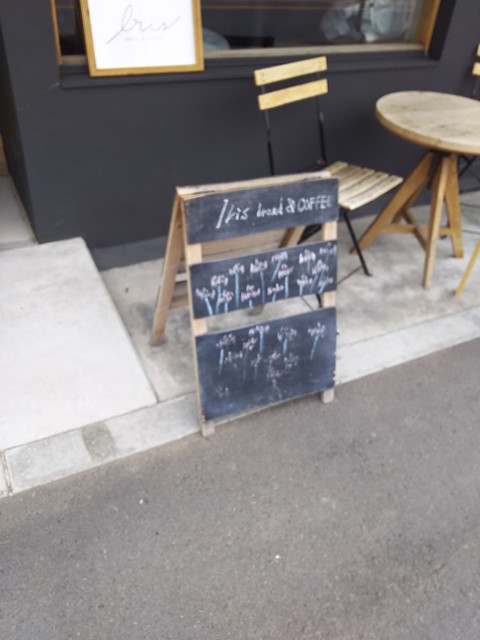 Iris
Iris bread & COFFEE